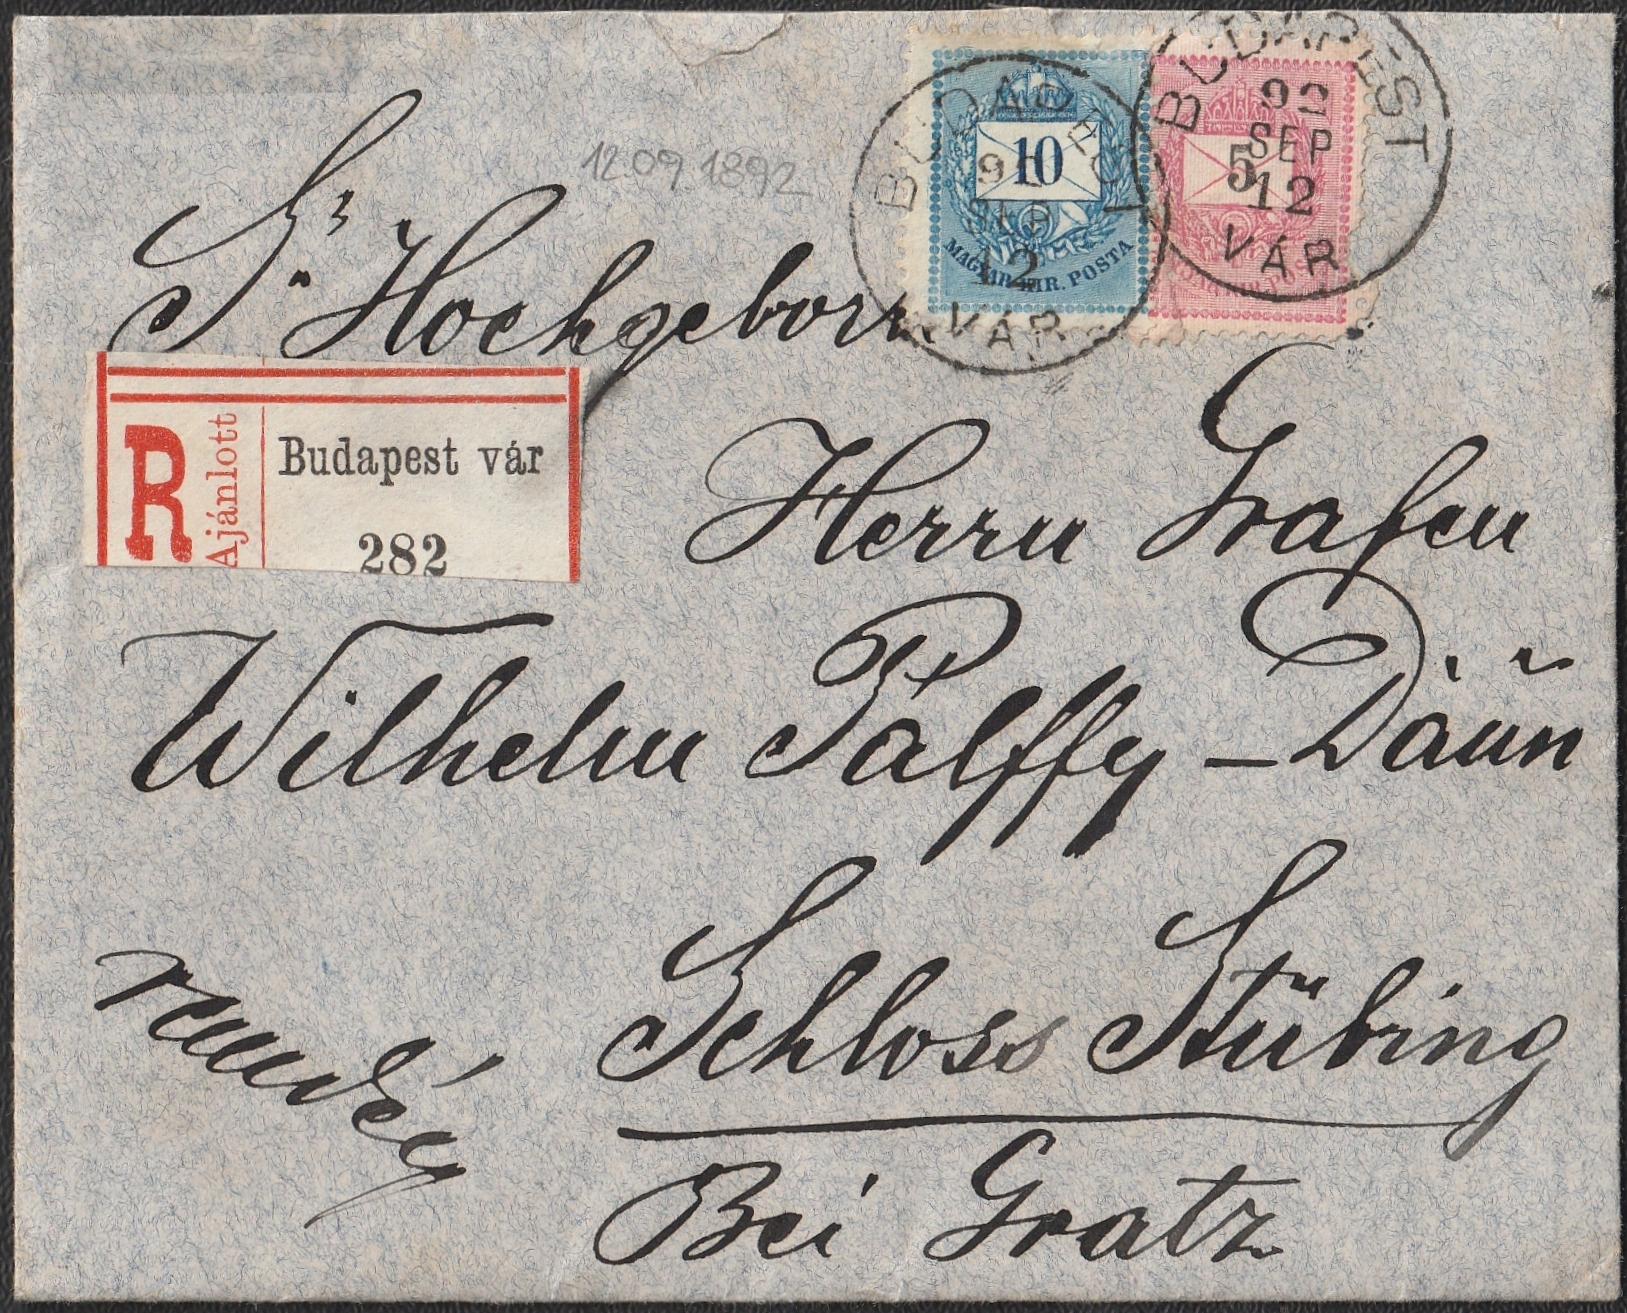 12.09.1892
BUDAPEST
92
SEP
12
VÁR
BUDAPEST
92
SEP
12
VÁR
10
MAGYAR KIR. POSTA
5
MAGYAR KIR. POSTA
Sr Hochgeborn
R
Ajánlott
Budapest vár
282
Herrn Grafen
Wilhelm Pálffy - Däun
Schloss Stübing
Bei Gratz